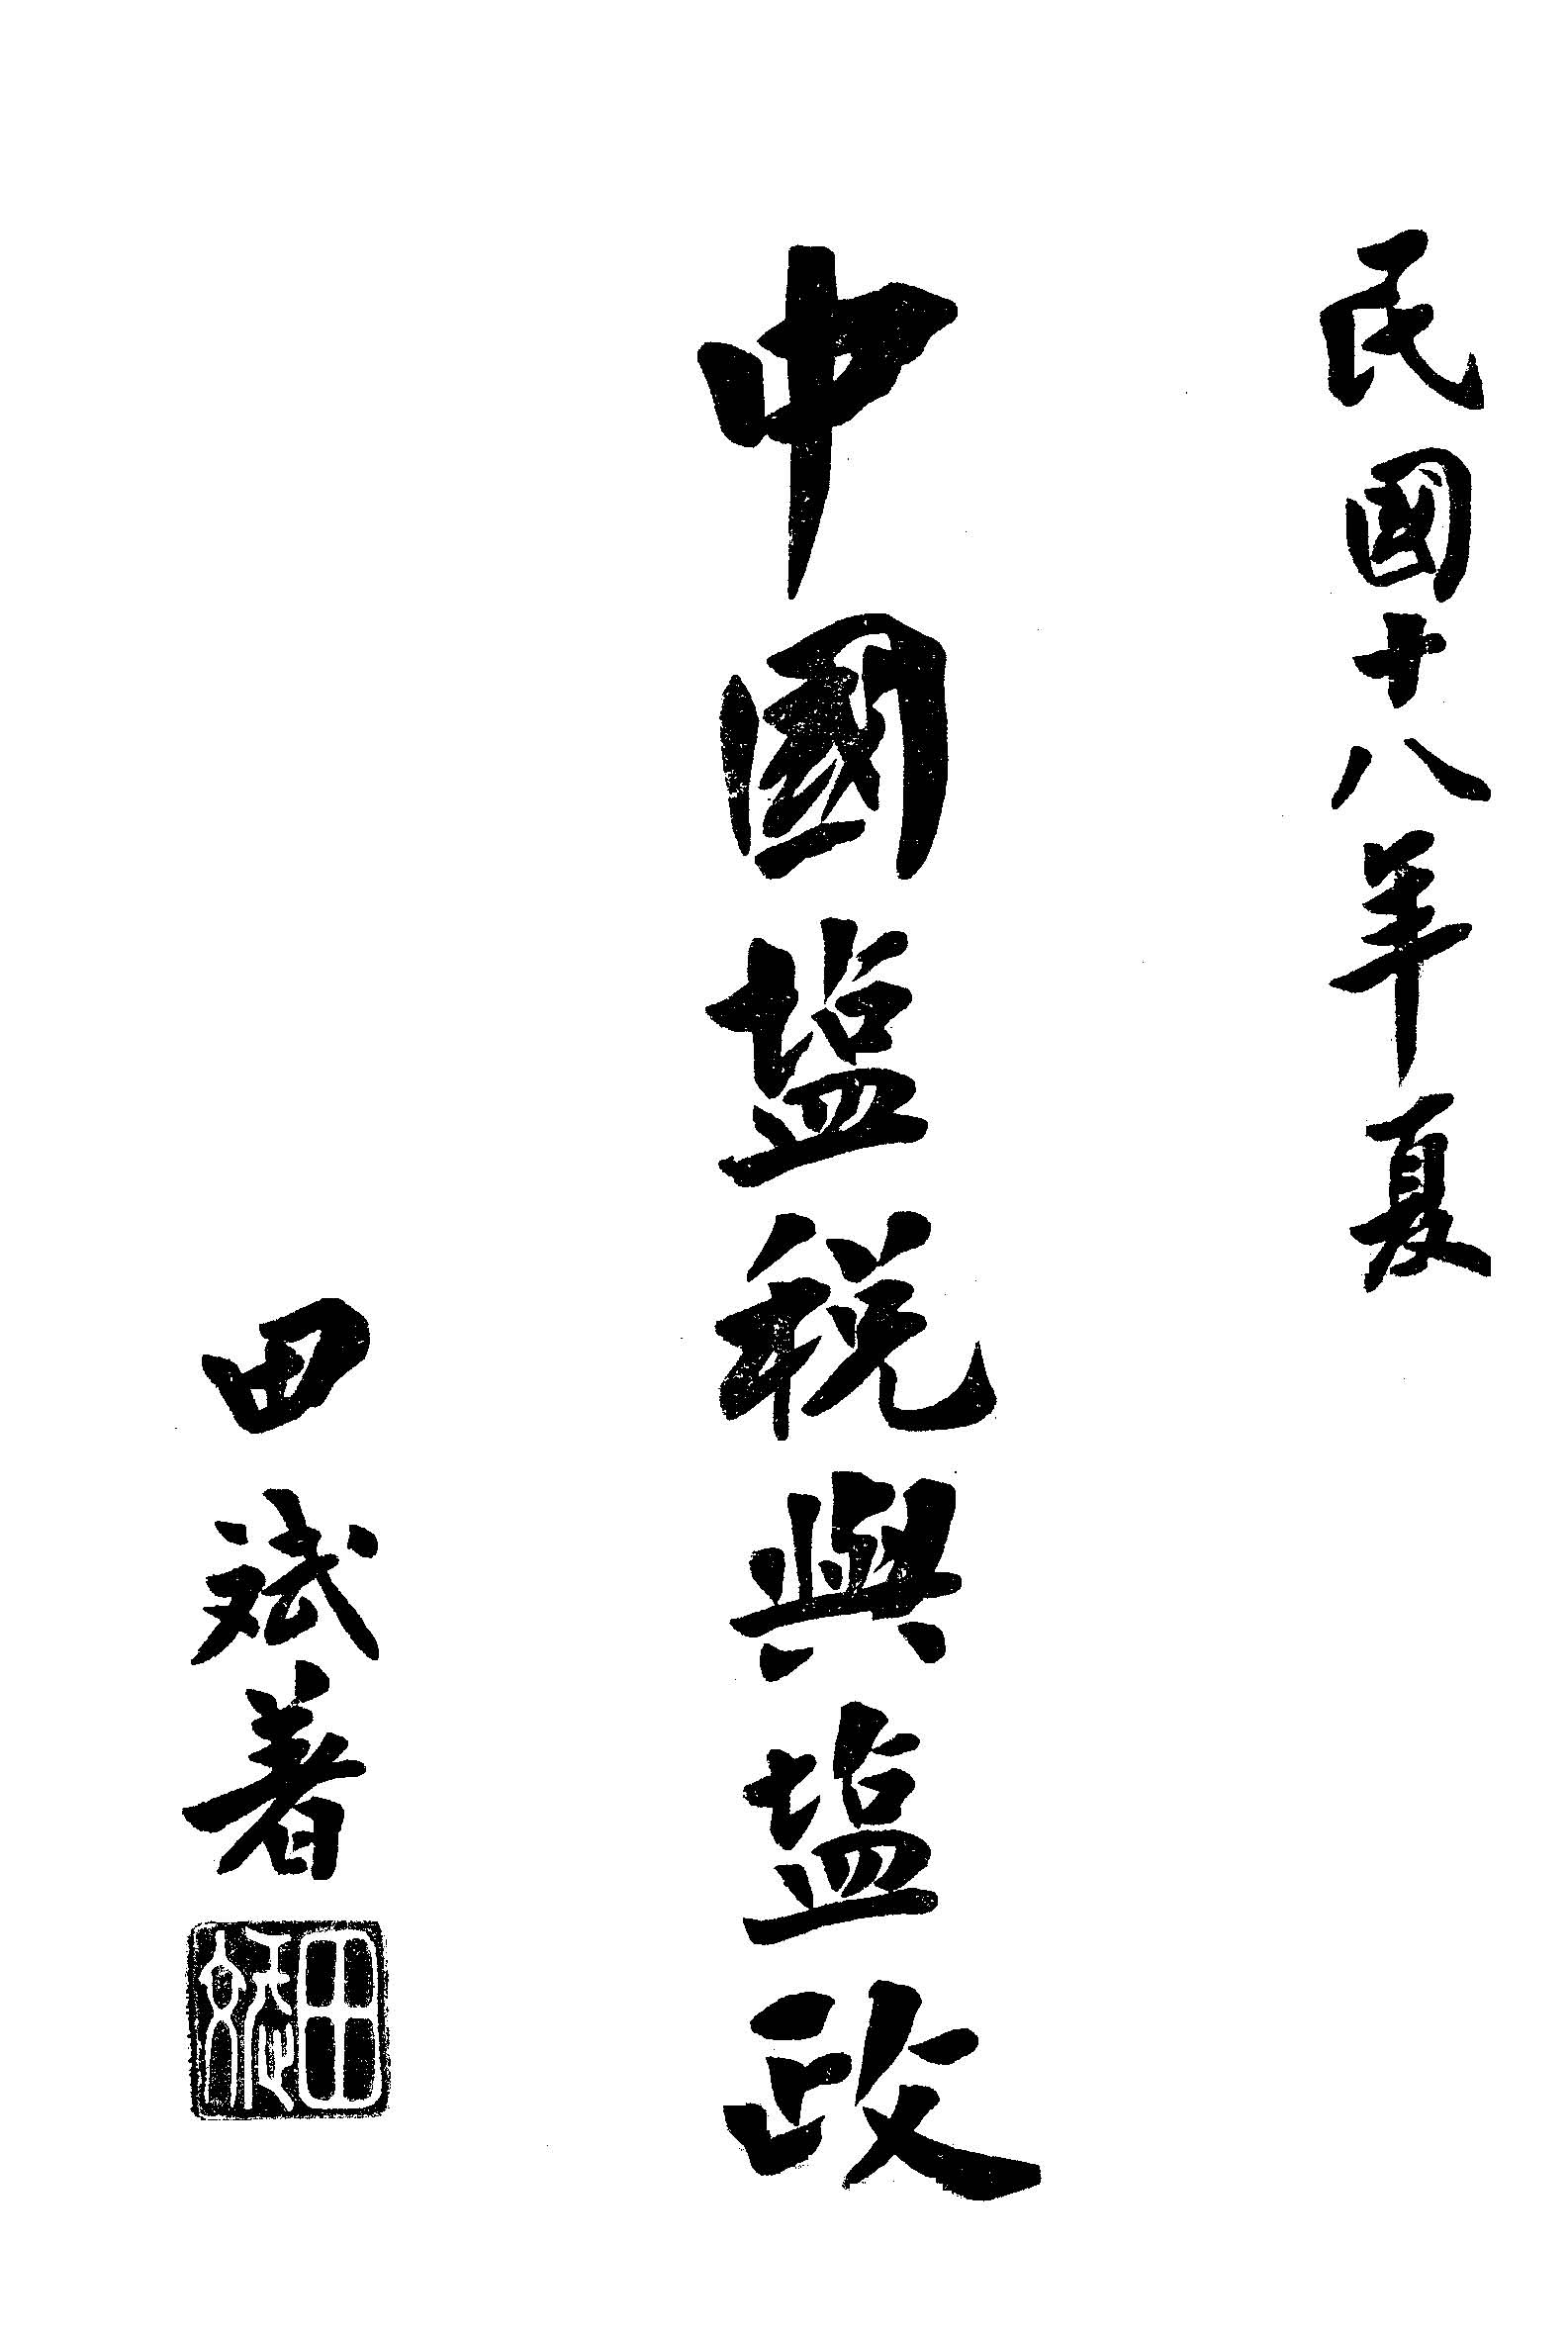 民國十八年夏
中國塩稅與塩政
田斌著
田斌